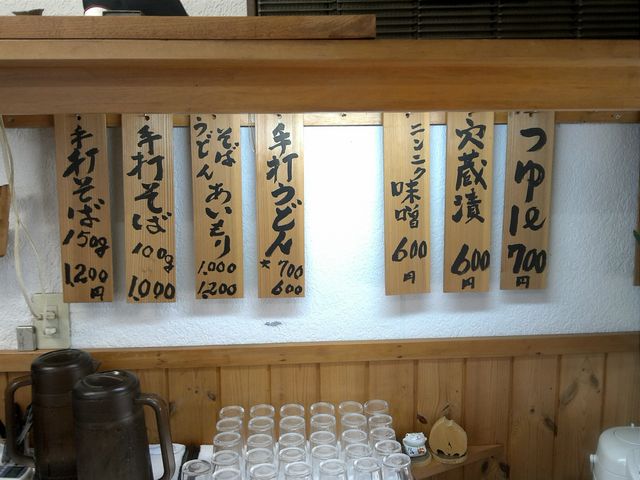 手打そば
150g
1200
円
手打そば
100g
1,000
そば
うどん
あいもり
1,000
1,200
手打うどん
大 700
600
ニンニク
味噌
600
円
穴蔵漬
600
円
つゆ1ℓ
700
円